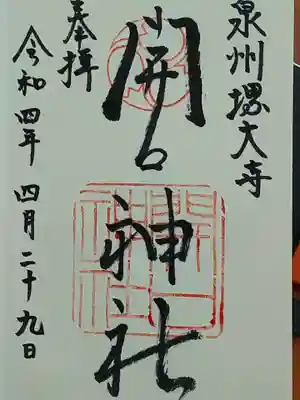 泉州堺大寺
開口神社
奉拝
令和四年 四月二十九日